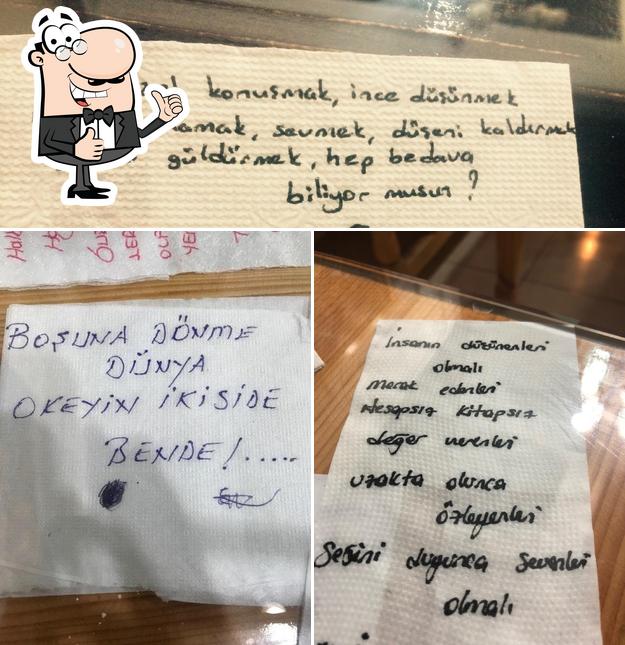 konuşmak, ince düşünmek
sevmek, düşeni kaldırmak
güldürmek, hep bedava
biliyor musun?
BOŞUNA DÖNME
DÜNYA
OKEYİN İKİSİDE
BENDE!.....
İnsanın düşünenleri
olmalı
merak edenleri
Hesapsız kitapsız
değer verenleri
uzakta olunca
özleyenleri
Sesini duyunca sevenleri
olmalı